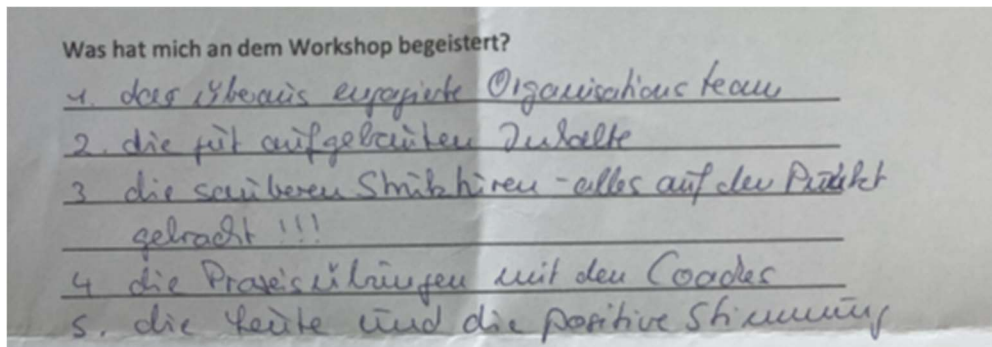 Was hat mich an dem Workshop begeistert?
1. das überaus engagierte Organisationsteam
2. die gut aufgebauten Inhalte
3 die sauberen Strukturen - alles auf den Punkt
gebracht !!!
4 die Praxisübungen mit den Coaches
5. die Leute und die positive Stimmung